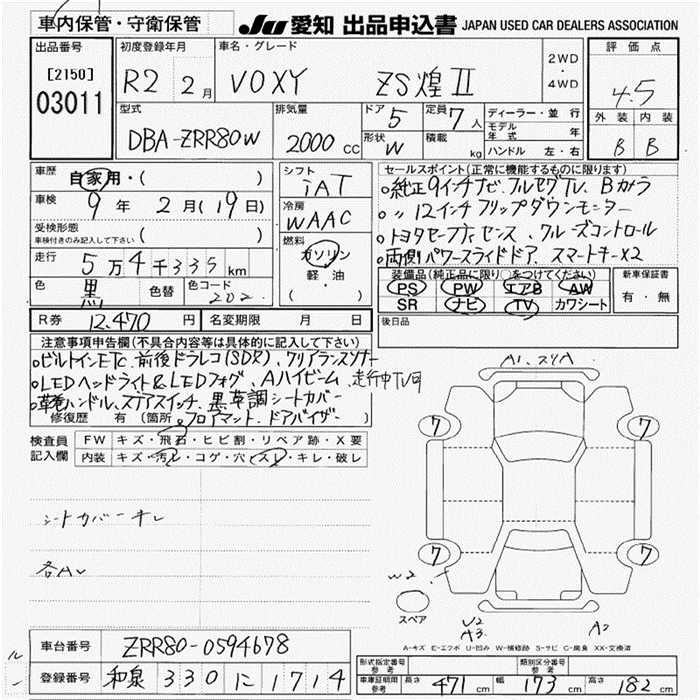 車内保管・守衛保管
JU 愛知 出品申込書 JAPAN USED CAR DEALERS ASSOCIATION
出品番号
[2150]
03011
初度登録年月
R2 2月
車名・グレード
VOXY ZS煌Ⅱ
2WD
・
4WD
評価点
4.5
外装 内装
B B
型式
DBA-ZRR80W
排気量
2000 cc
ドア
5
定員
7人
形状
W
積載
kg
ディーラー・並行
モデル年式 年
ハンドル 左・右
車歴
自家用・( )
車検
9年 2月(19日)
受検形態
車検付きのみ記入して下さい
( )
走行
5万4千335km
色
黒
色替
色コード
202
シフト
IAT
冷房
WAAC
燃料
ガソリン
軽・油
( )
セールスポイント(正常に機能するものに限ります)
○純正9インチナビ、フルセグTV、Bカメラ
○〃12インチフリップダウンモニター
○トヨタセーフティセンス、クルーズコントロール
○両側パワースライドドア、スマートキーX2
装備品(純正品に限り○をつけてください)
PS PW エアB AW
SR ナビ TV カワシート
新車保証書
有・無
R券 12,470 円
名変期限 月 日
後日品
注意事項申告欄(不具合内容等は具体的に記入して下さい)
○ビルトインETC、前後ドラレコ(SDR)、クリアランスソナー
○LEDヘッドライト&LEDフォグ、Aハイビーム、走行中TV可
○革巻ハンドル、ステアスイッチ、黒革調シートカバー
修復歴 有 (箇所
○フロアマット、ドアバイザー
検査員記入欄
FW キズ・飛石・ヒビ割・リペア跡・X要
内装 キズ・汚レ・コゲ・穴・スレ・キレ・破レ
シートカバーキレ
各AU
A1、スリA
7
7
7
7
W2
スペア
U2
A3
A2
A-キズ E-エクボ U-凹み W-補修跡 S-サビ C-腐食 XX-交換済
車台番号
ZRR80-0594678
登録番号
和泉 330 に 1714
形式指定番号
参考
類別区分番号
参考
車庫証明用
参考
長さ 471 cm
幅 173 cm
高さ 182 cm